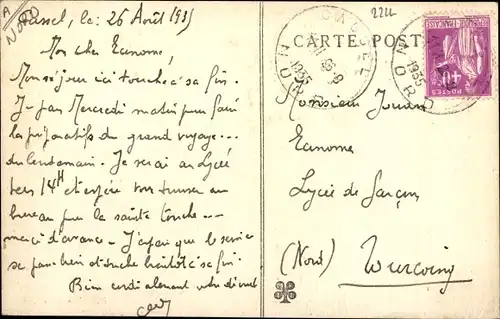 A
NORD
Cassel, le: 26 Août 1935
2222
CARTE POSTALE
CASSEL
NORD
1935
Mon cher Econome,
Mon séjour ici touche à sa fin.
Je pars Mercredi matin pour faire
les préparatifs du grand voyage...
du lendemain. Je serai au Lycée
vers 14H et espère vous trouver au
bureau pour la sainte touche...
merci d'avance. J'espère que le service
se passe bien et touche bientôt à sa fin.
Bien cordialement votre dévoué
Monsieur
Econome
Lycée de Garçons
(Nord) Tourcoing
POSTES